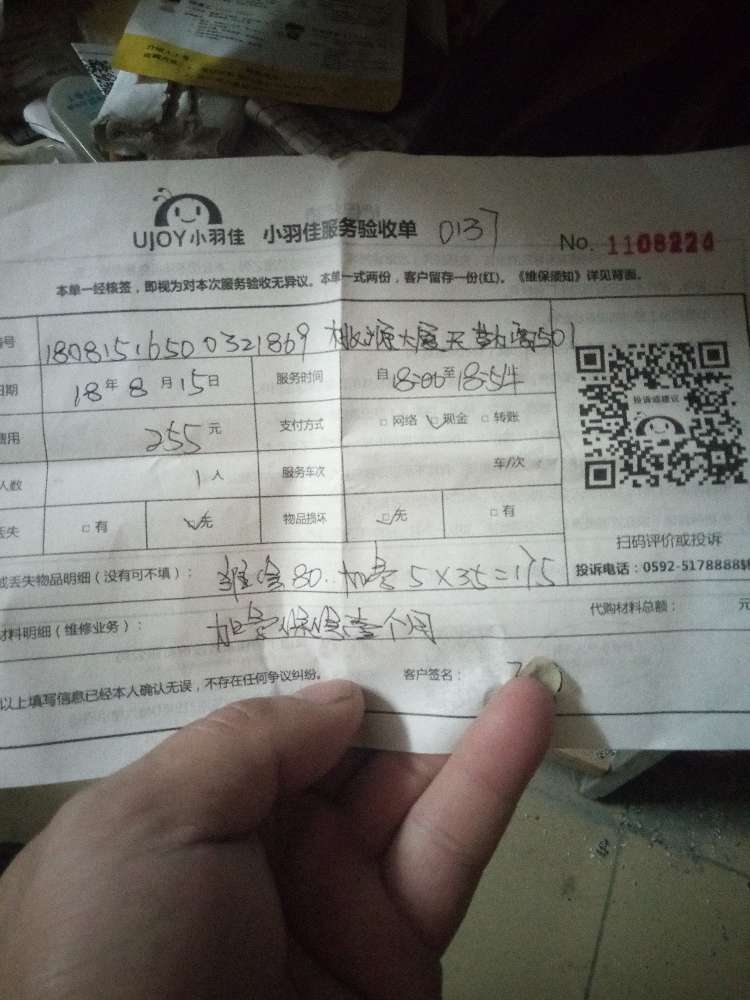 UJOY小羽佳 小羽佳服务验收单 0137
No. 1108224
本单一经核签，即视为对本次服务验收无异议。本单一式两份，客户留存一份(红)。《维保须知》详见背面。
号 18081516500321869 桃源大厦天 501
日期 18年8月15日 服务时间 自18:00至18:54
费用 255元 支付方式 □网络 □现金 □转账
人数 1人 服务车次 车/次
丢失 □有 □无 物品损坏 □无 □有
投诉或建议
扫码评价或投诉
投诉电话：0592-5178888转
或丢失物品明细（没有可不填）： 80. 加 5×35=175
材料明细（维修业务）： 加 保 个月
代购材料总额： 元
以上填写信息已经本人确认无误，不存在任何争议纠纷。 客户签名：